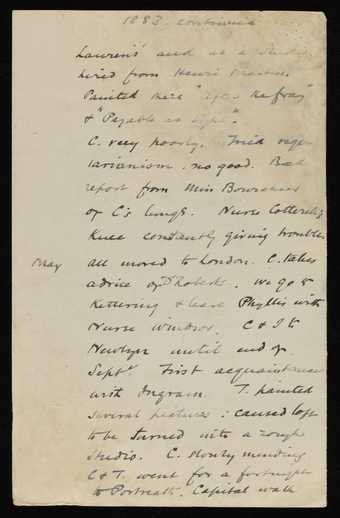 1883 continued
Laurens' and at a studio
hired from Henri Martin.
Painted there "After the fray"
& "Payable at sight".
C. very poorly. Tried vege-
tarianism. no good. Bad
report from Miss
of C's lungs. Nurse Cotterell's
knee constantly giving trouble.
May all moved to London. C. takes
advice of Dr Roberts. We go to
Kettering & leave Phyllis with
Nurse Windsor. C & I to
Newlyn until end of
Sept. First acquaintance
with Ingram. T. painted
several pictures: caused loft
to be turned into a rough
studio. C. slowly mending
C & T. went for a fortnight
to Portreath. Capital walk